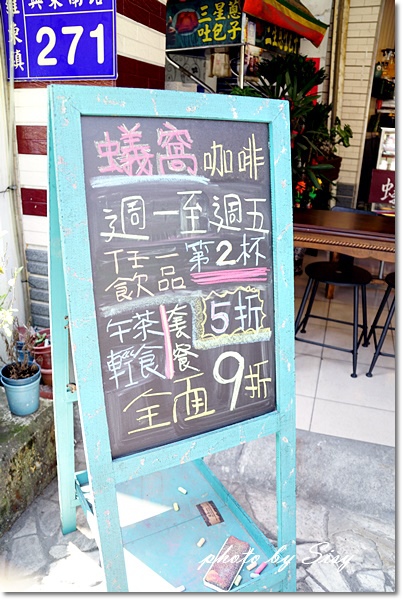 羅東鎮
興東南路
271
三星蔥
吐包子
蟻窩 咖啡
週一至週五
任一 第2杯
飲品 5折
午茶 套
輕食 餐
全面9折
photo by Sisy